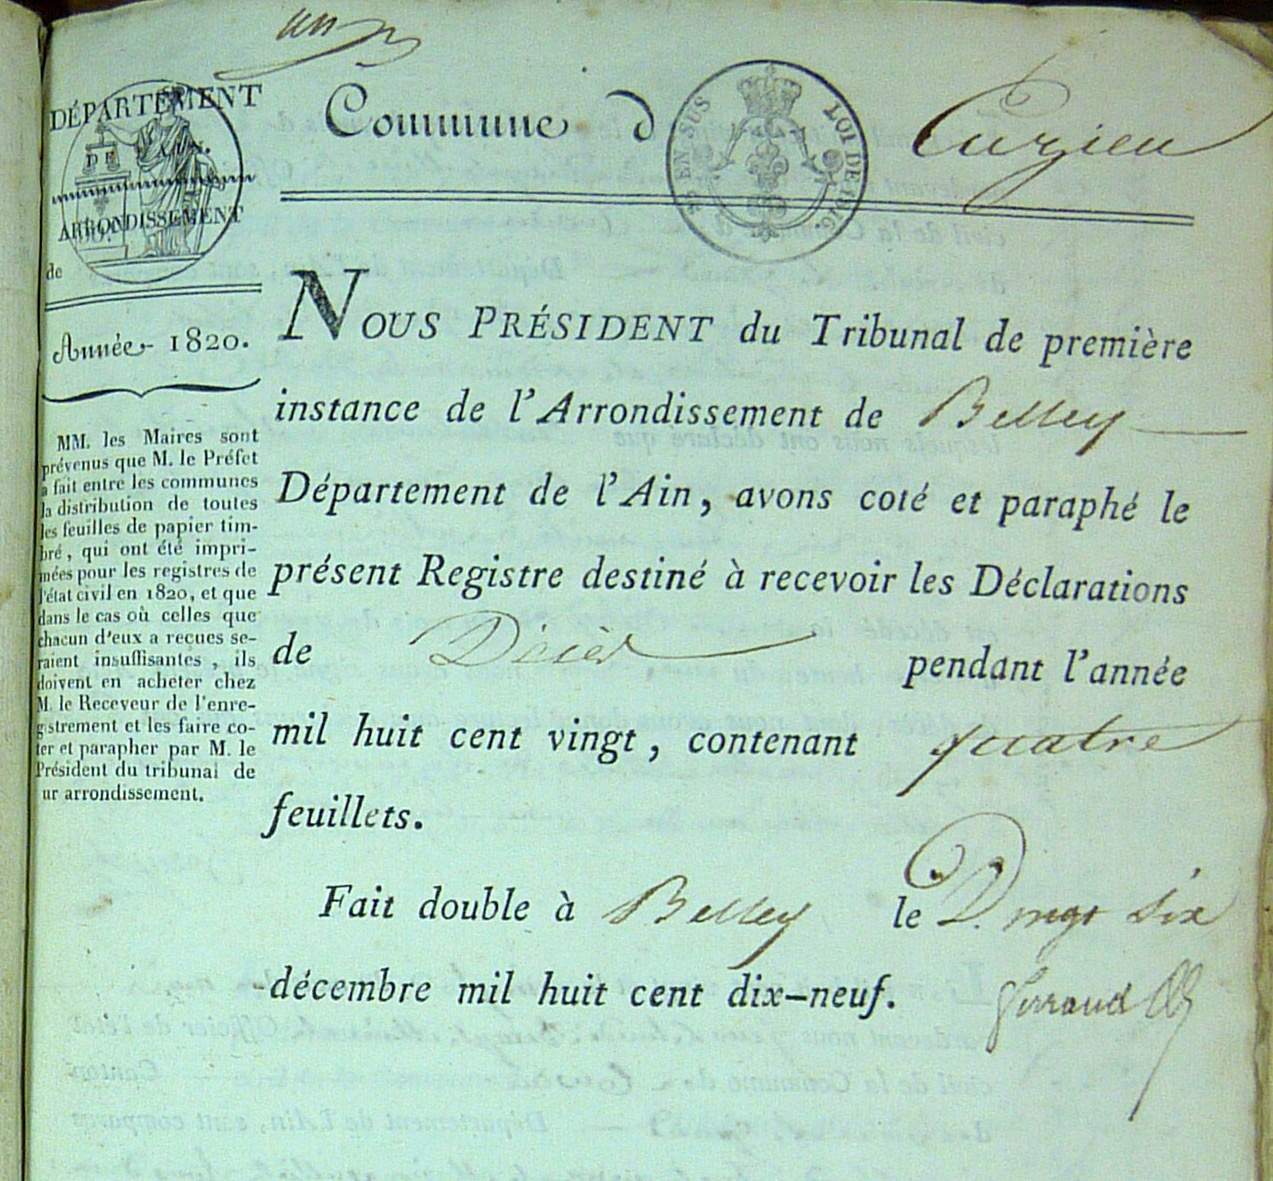 DÉPARTEMENT
DE L'AIN.
ARRONDISSEMENT
de
Année 1820.
MM. les Maires sont
prévenus que M. le Préfet
a fait entre les communes
la distribution de toutes
les feuilles de papier tim-
bré, qui ont été impri-
mées pour les registres de
l'état civil en 1820, et que
dans le cas où celles que
chacun d'eux a reçues se-
raient insuffisantes, ils
doivent en acheter chez
M. le Receveur de l'enre-
gistrement et les faire co-
ter et parapher par M. le
Président du tribunal de
ur arrondissement.
un
Commune d Cuzieu
EN SUS
LOI DE 1816
NOUS PRÉSIDENT du Tribunal de première
instance de l'Arrondissement de Belley
Département de l'Ain, avons coté et paraphé le
présent Registre destiné à recevoir les Déclarations
de Décès pendant l'année
mil huit cent vingt, contenant quatre
feuillets.
Fait double à Belley le vingt six
décembre mil huit cent dix-neuf.